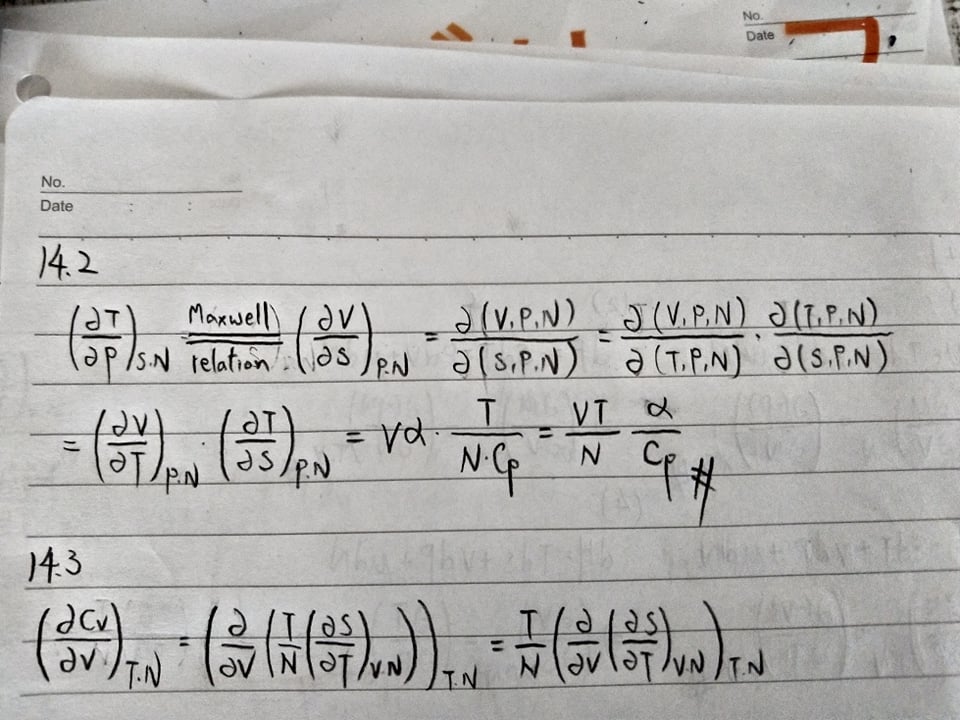 No.
Date
No.
Date : :
14.2
(∂T/∂P)_{S.N} Maxwell relation. (∂V/∂S)_{P.N} = ∂(V,P,N)/∂(S,P,N) = ∂(V,P,N)/∂(T,P,N) · ∂(T,P,N)/∂(S,P,N)
= (∂V/∂T)_{P.N} · (∂T/∂S)_{P.N} = Vα · T/(N·Cp) = VT/N α/Cp #
14.3
(∂Cv/∂V)_{T.N} = (∂/∂V (T/N (∂S/∂T)_{V.N}))_{T.N} = T/N (∂/∂V (∂S/∂T)_{V.N})_{T.N}